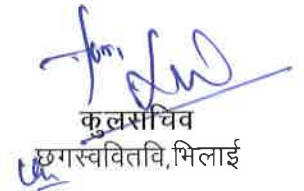 कुलसचिव
छगस्ववितवि, भिलाई